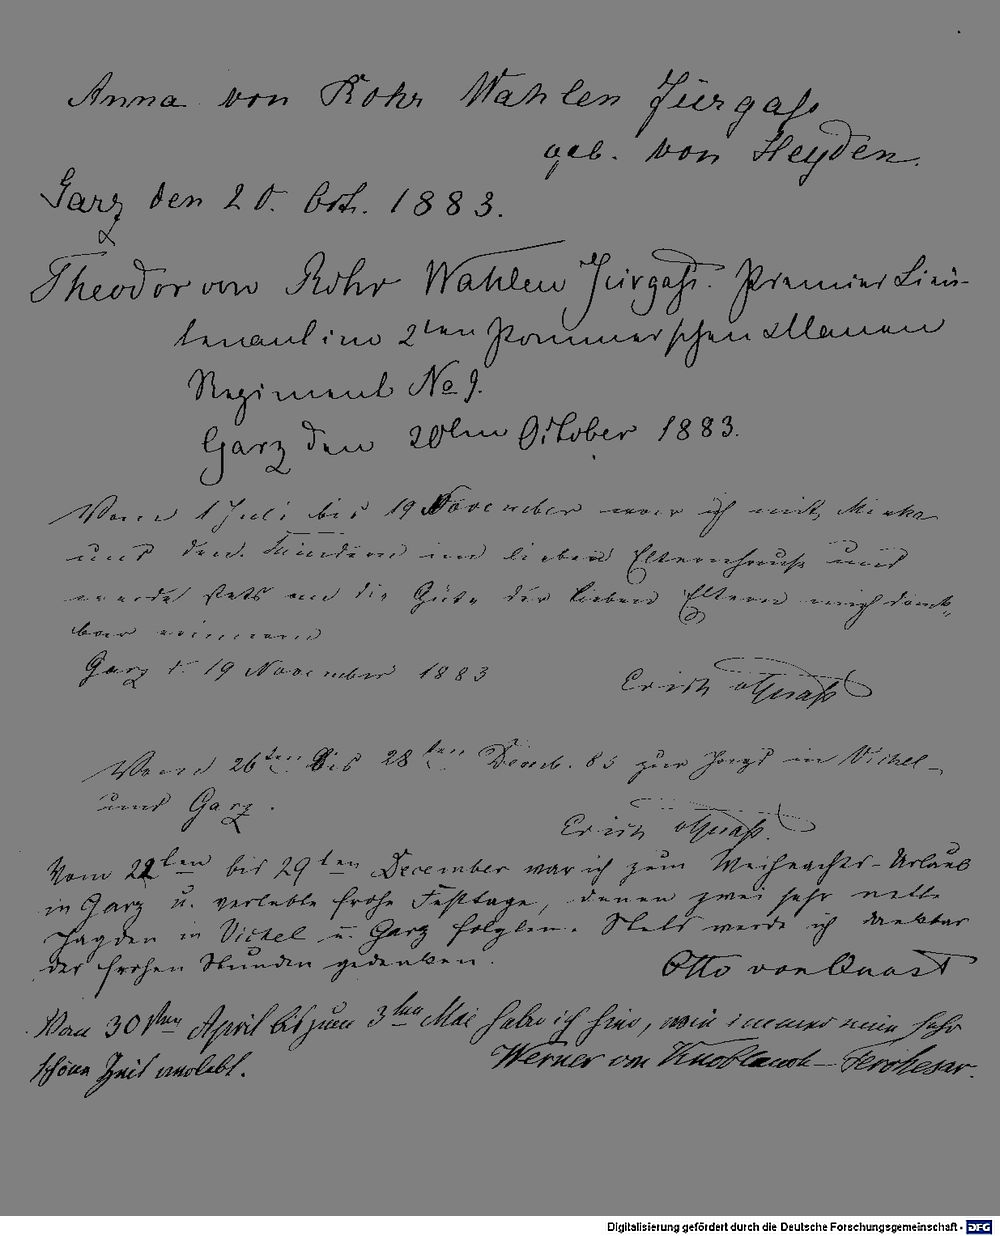 Anna von Rohr Wahlen Jürgaß
geb. von Heyden.
Garz den 20. Oct. 1883.
Theodor von Rohr Wahlen Jürgaß. Premier Lieu-
tenant im 2ten Pommerschen Ulanen
Regiment No 9.
Garz den 20ten October 1883.
Vom 1 Juli bis 19 November war ich mit
und den Kindern im lieben Elternhause und
werde stets an die Güte der lieben Eltern mich dank-
bar erinnern
Garz d. 19 November 1883
Erich
Vom 26ten bis 28ten Decemb. 83 zur Jagd in Vichel
und Garz.
Erich
Vom 22ten bis 29ten December war ich zum Weihnachts-Urlaub
in Garz u. verlebte frohe Festtage, denen zwei sehr nette
Jagden in Vichel u. Garz folgten. Stets werde ich dankbar
der frohen Stunden gedenken.
Otto von Quast
Vom 30ten April bis zum 3ten Mai habe ich hier, wie immer eine sehr
schöne Zeit verlebt.
Werner von Knoblauch-Ferchesar.
Digitalisierung gefördert durch die Deutsche Forschungsgemeinschaft - DFG